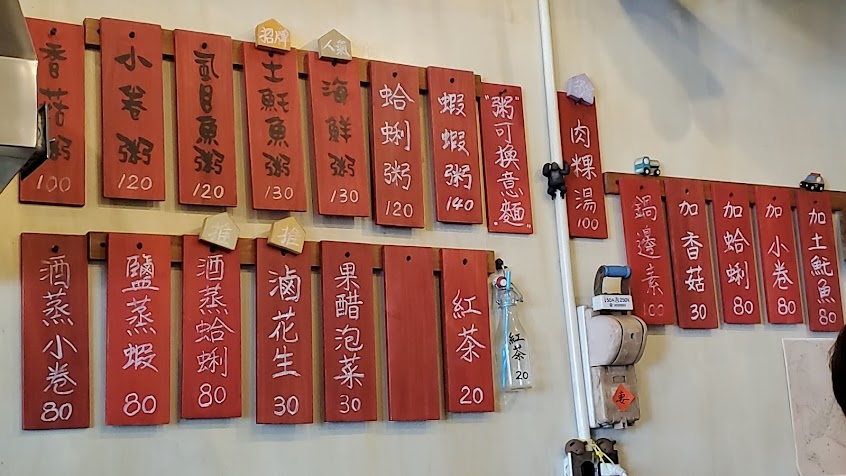 香菇粥 100
小卷粥 120
虱目魚粥 120
招牌
土魠魚粥 130
人氣
海鮮粥 130
蛤蜊粥 120
蝦蝦粥 140
"粥可換意麵"
肉粿湯 100
鍋邊素 100
加香菇 30
加蛤蜊 80
加小卷 80
加土魠魚 80
酒蒸小卷 80
鹽蒸蝦 80
推
酒蒸蛤蜊 80
推
滷花生 30
果醋泡菜 30
紅茶 20
紅茶 20